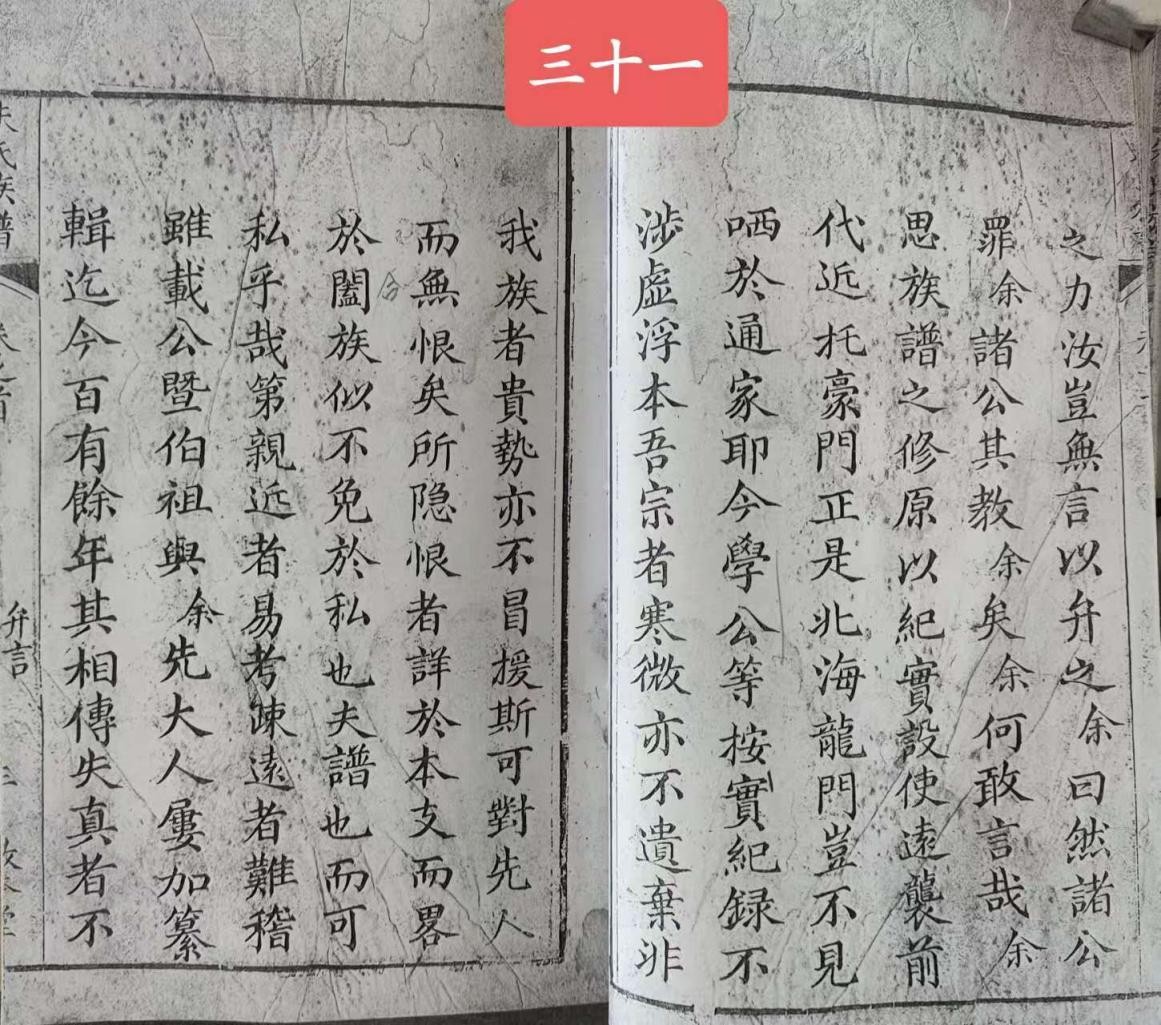 三十一
之力汝豈無言以弁之余曰然諸公
罪余諸公其教余矣余何敢言哉余
思族譜之修原以紀實設使遠襲前
代近托豪門正是北海龍門豈不見
哂於通家耶今學公等按實紀録不
涉虛浮本吾宗者寒微亦不遺棄非
我族者貴勢亦不冒援斯可對先人
而無恨矣所隐恨者詳於本支而畧
於闔族似不免於私也夫譜也而可
私乎哉第親近者易考疎遠者難稽
雖載公暨伯祖與余先大人屢加纂
輯迄今百有餘年其相傳失真者不
氏族譜
弁言